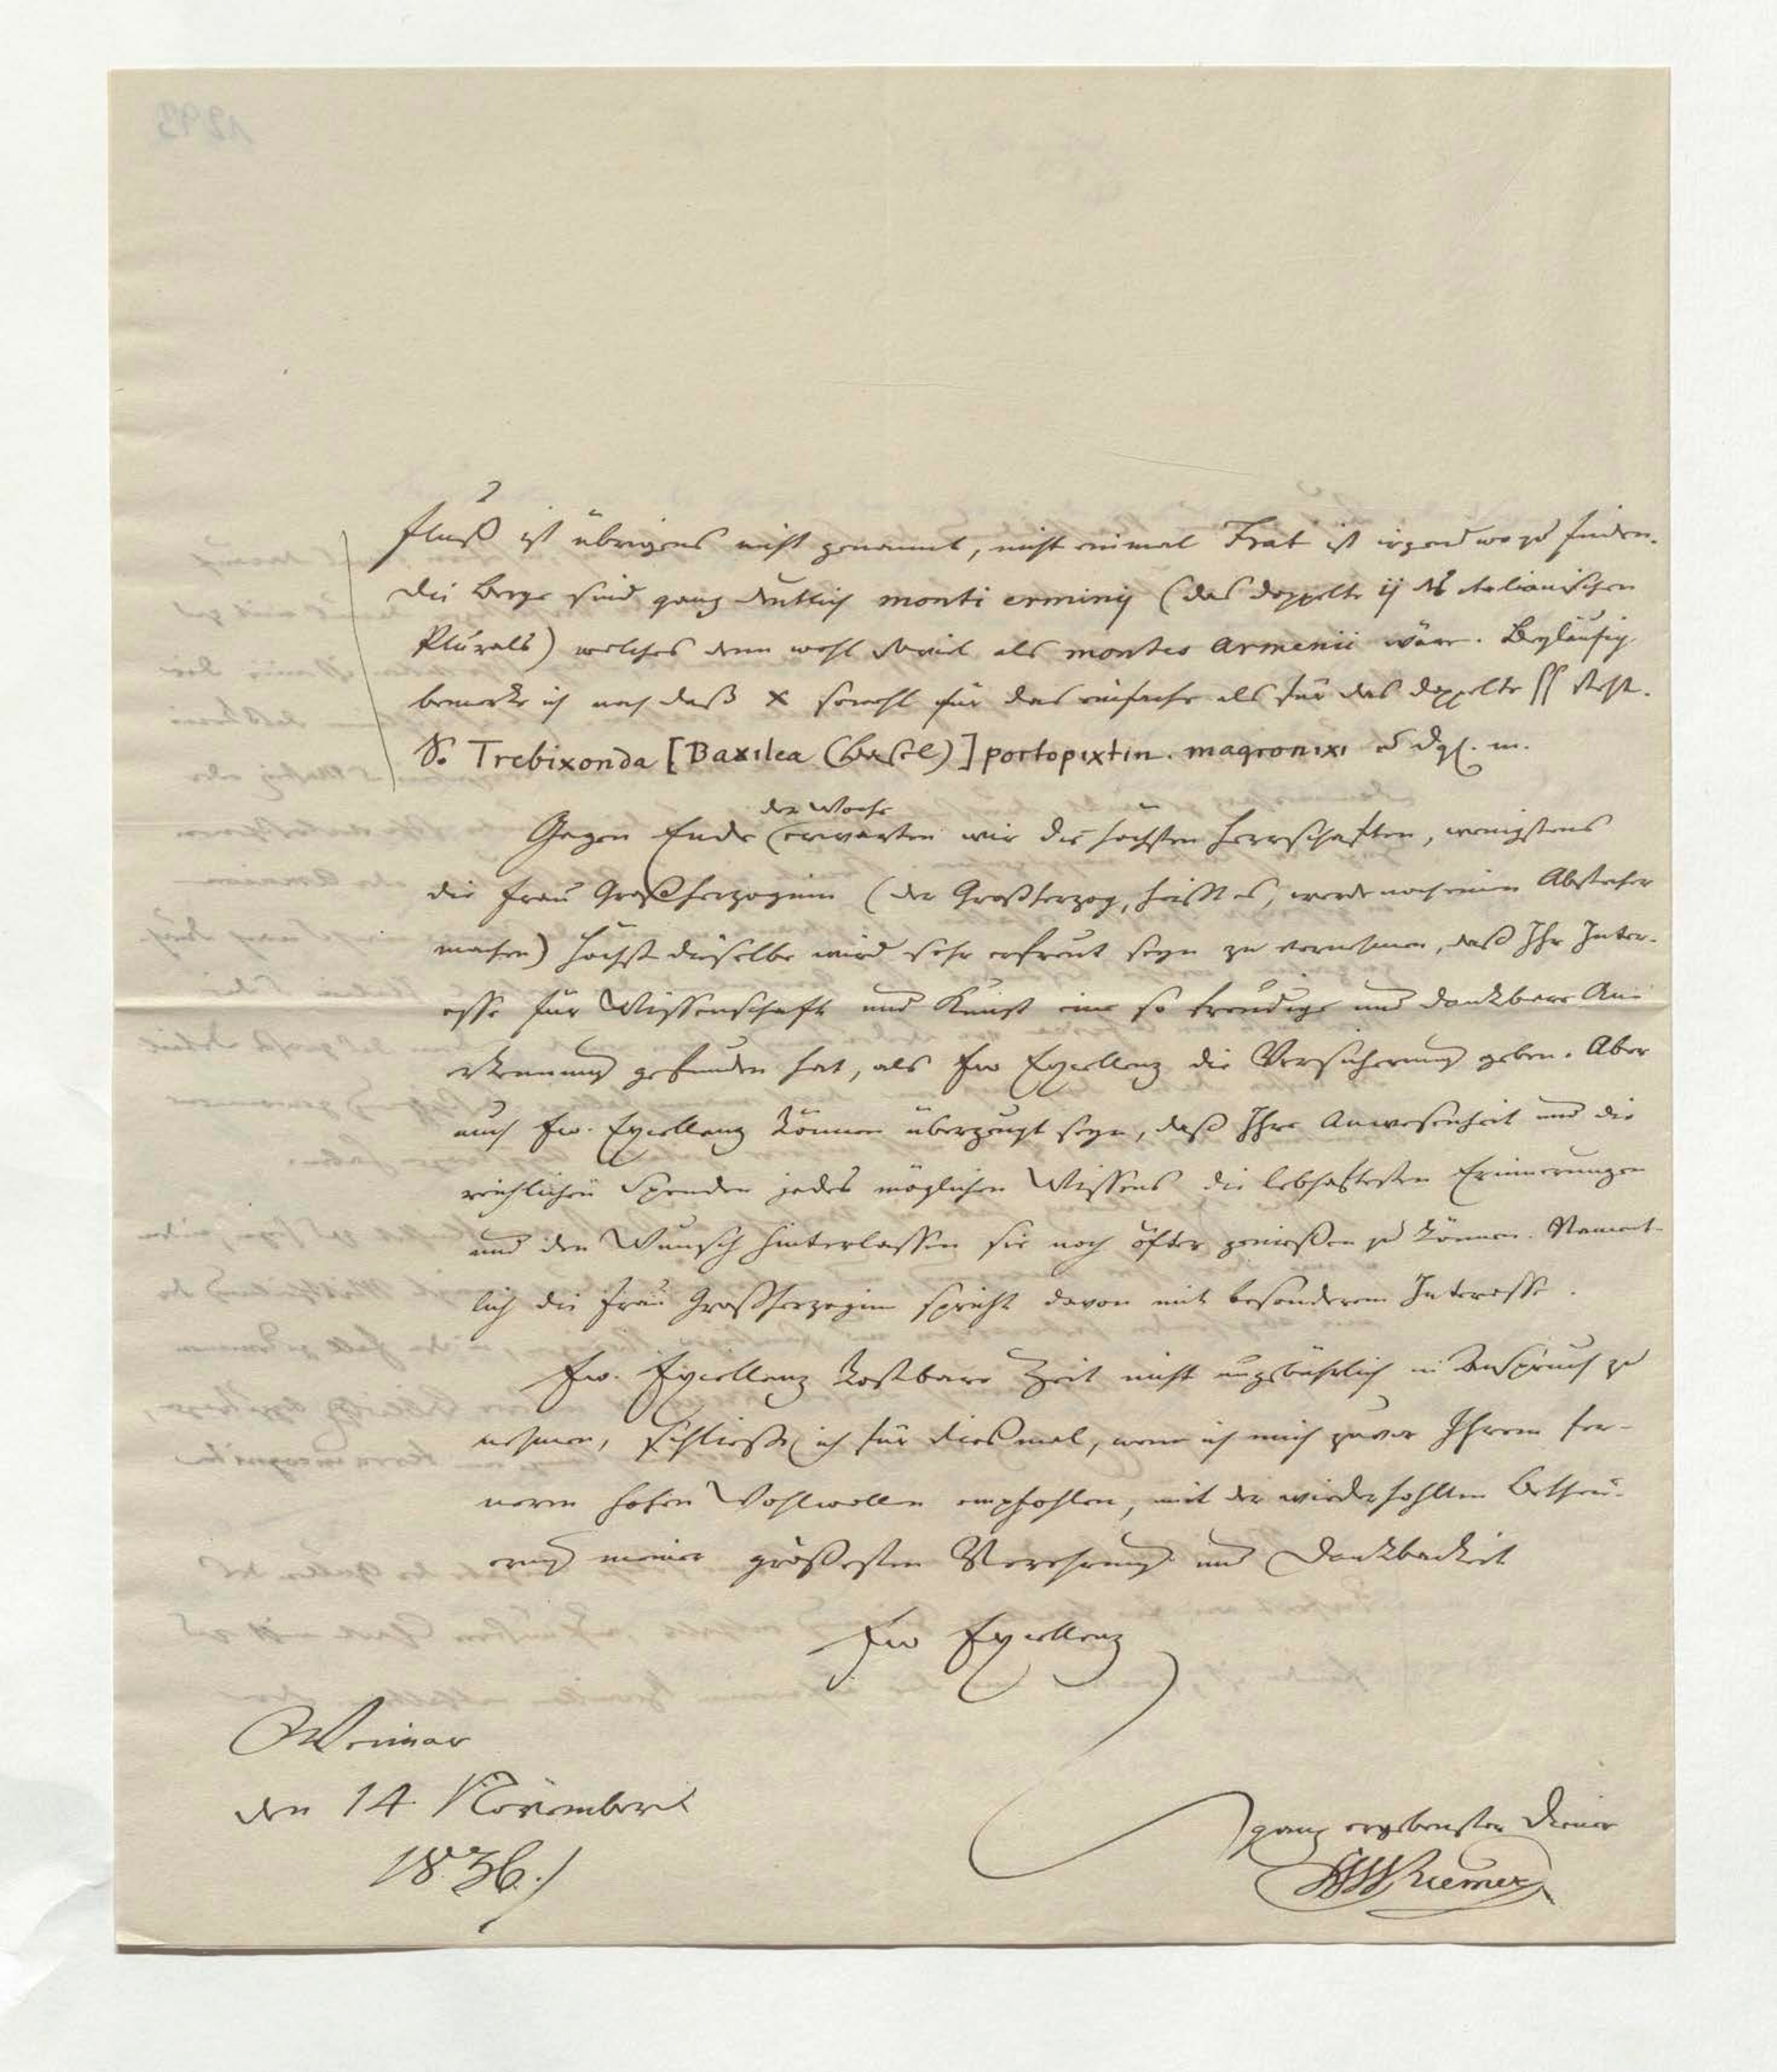 Fluß ist übrigens nicht genannt, nicht einmal Frat ist irgendwo zu finden.
Die Berge sind ganz deutlich monti erminij (das doppelte ij des italianischen
Plurals) welches denn wohl soviel als montes Armenii wäre. Beyläufig
bemerke ich noch daß x sowohl für das einfache als für das doppelte ſſ steht.
S. Trebixonda [Baxilea (Basel)] portopixtin. magronixi u dgl. m.
der Woche
Gegen Ende erwarten wir die höchsten Herrschaften, wenigstens
die Frau Großherzoginn (der Großherzog, heißt es, werde noch einen Abstecher
machen) Höchst dieselbe wird sehr erfreut seyn zu vernehmen, daß Ihr Inter-
esse für Wissenschaft und Kunst eine so freudige und dankbare An-
erkennung gefunden hat, als Ew Excellenz die Versicherung geben. Aber
auch Ew. Excellenz können überzeugt seyn, daß Ihre Anwesenheit und die
reichlichen Spenden jedes möglichen Wissens die lebhaftesten Erinnerungen
und den Wunsch hinterlassen sie noch öfter genießen zu können. Nament-
lich die Frau Großherzogin spricht davon mit besonderem Interesse.
Ew. Excellenz kostbare Zeit nicht ungebührlich in Anspruch zu
nehmen, schließe ich für diesmal, wenn ich mich zuvor Ihrem fer-
neren hohen Wohlwollen empfohlen, mit der wiederhohlten Betheu-
erung meiner größesten Verehrung und Dankbarkeit
Ew Excellenz
Weimar
den 14. November
1836.
ganz ergebenster Diener
FWRiemer
1293